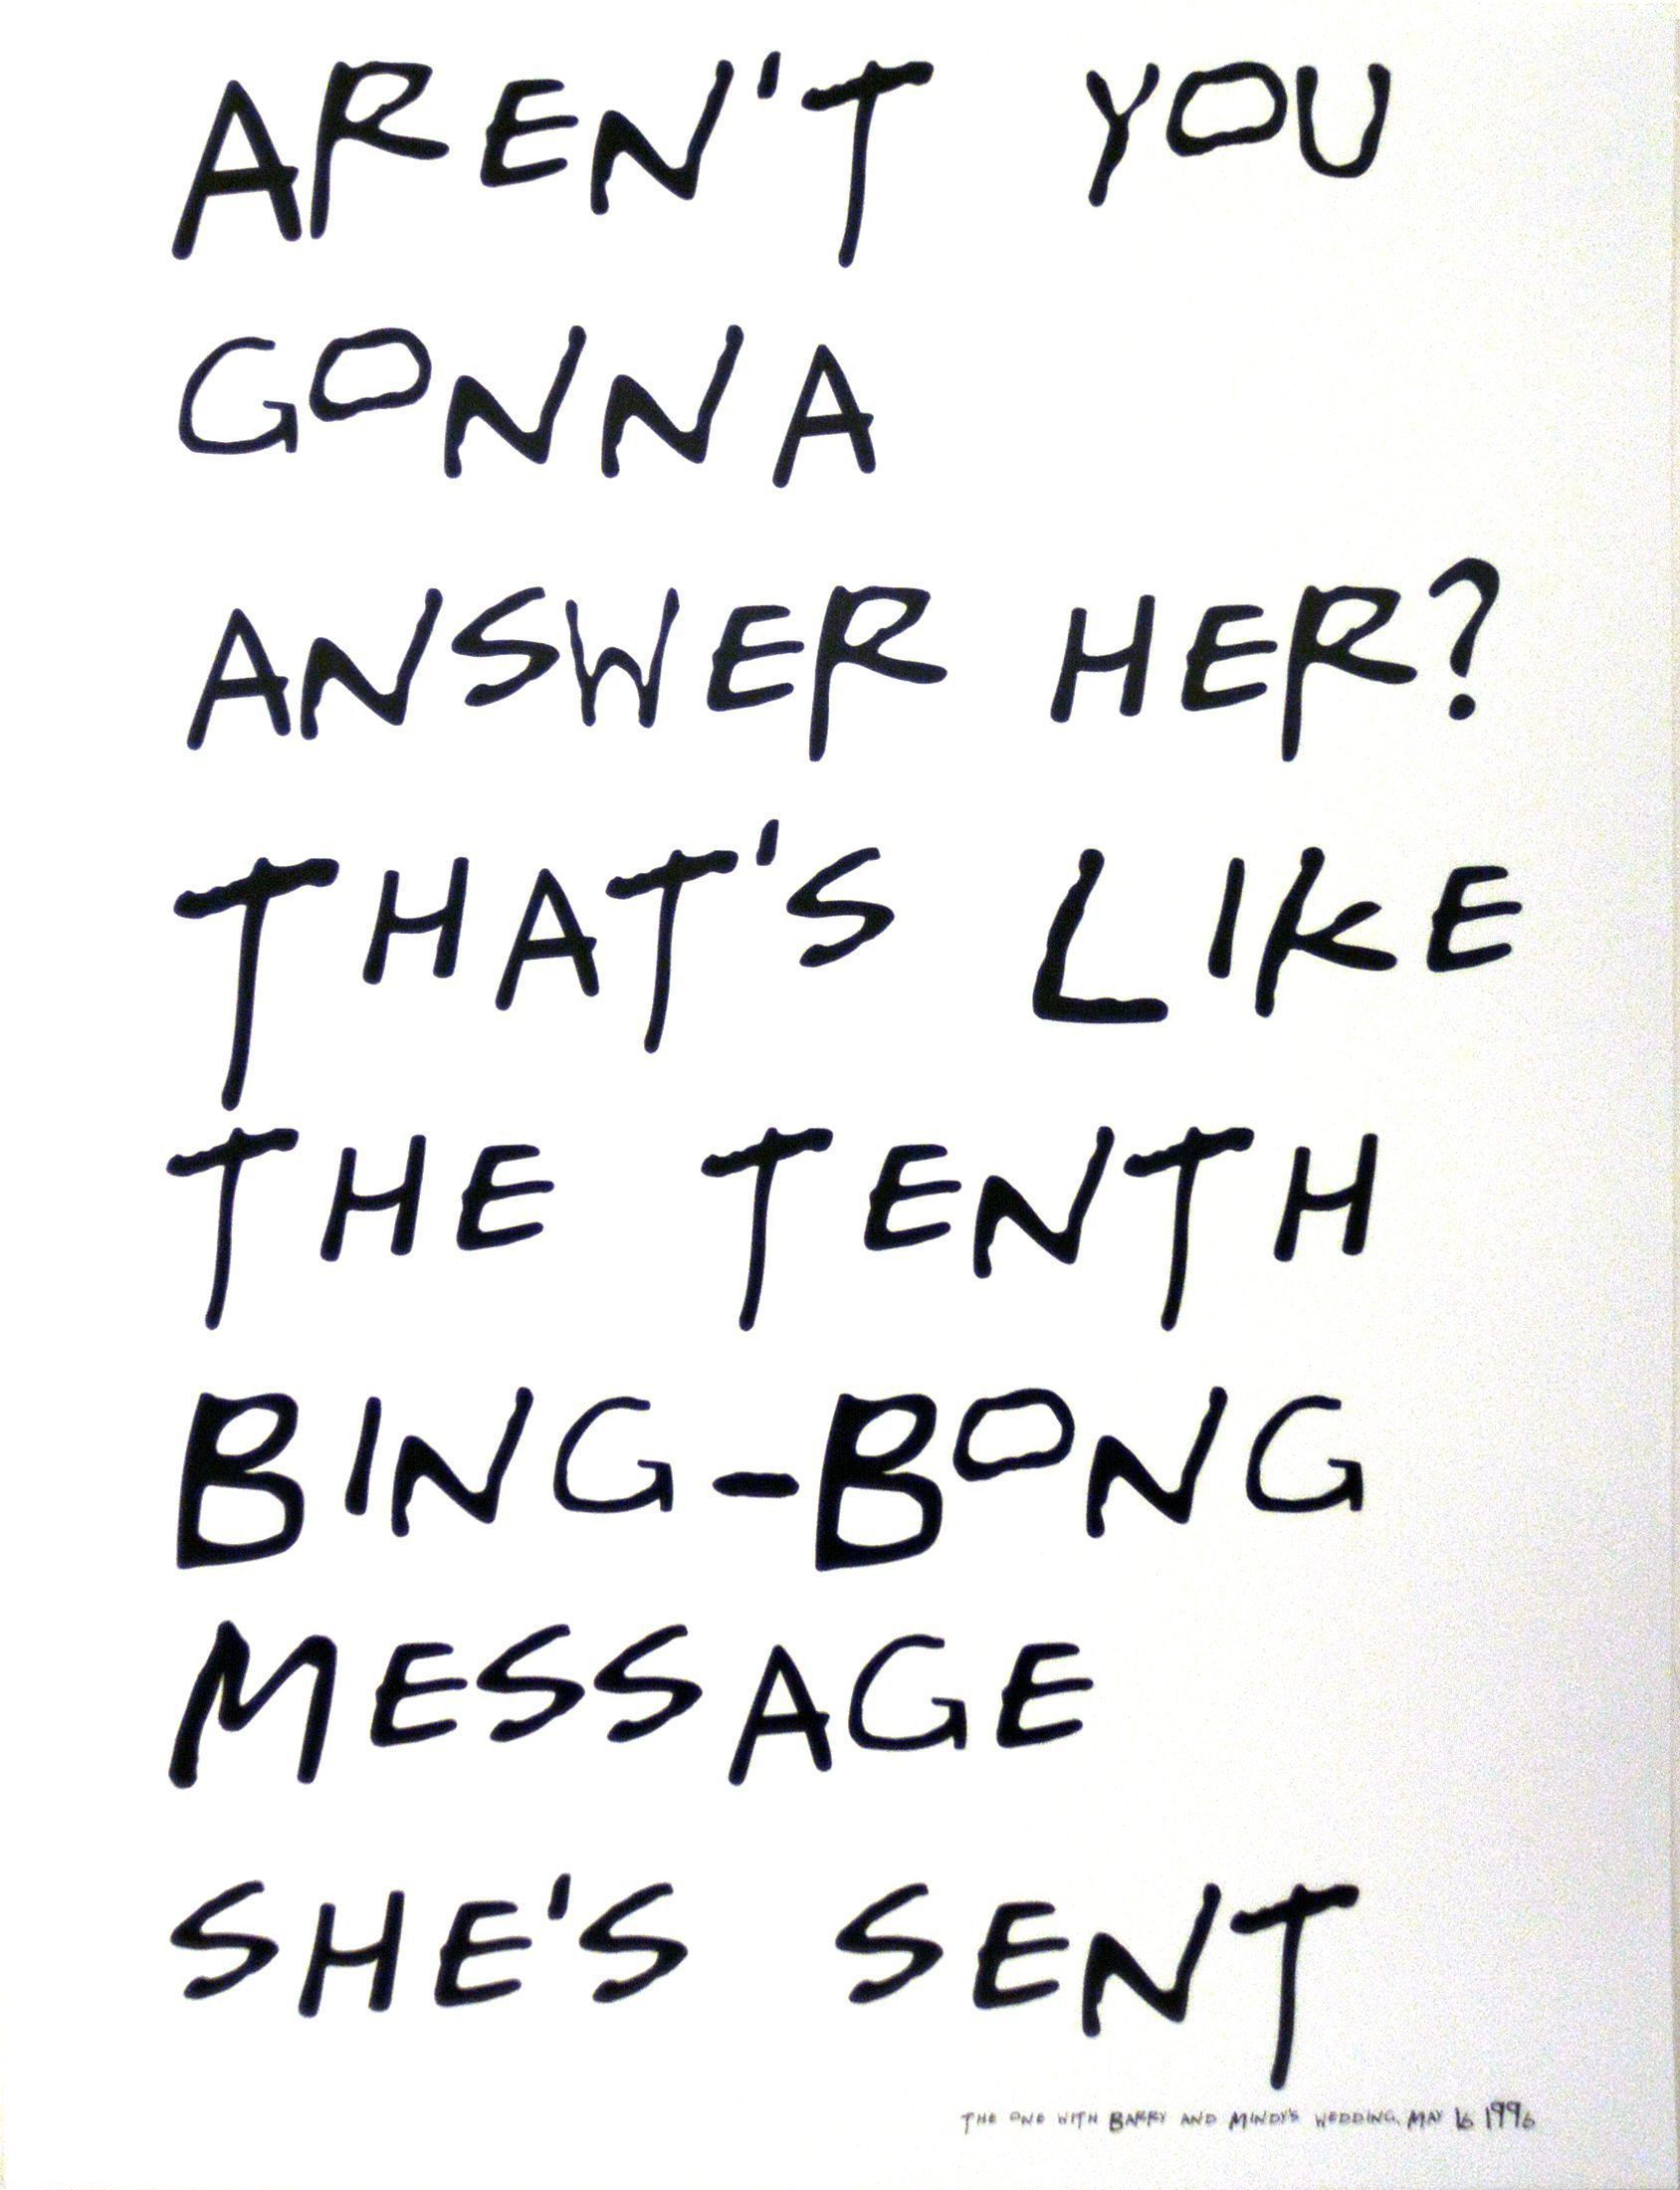 AREN'T YOU
GONNA
ANSWER HER?
THAT'S LIKE
THE TENTH
BING-BONG
MESSAGE
SHE'S SENT
THE ONE WITH BARRY AND MINDY'S WEDDING, MAY 16 1996